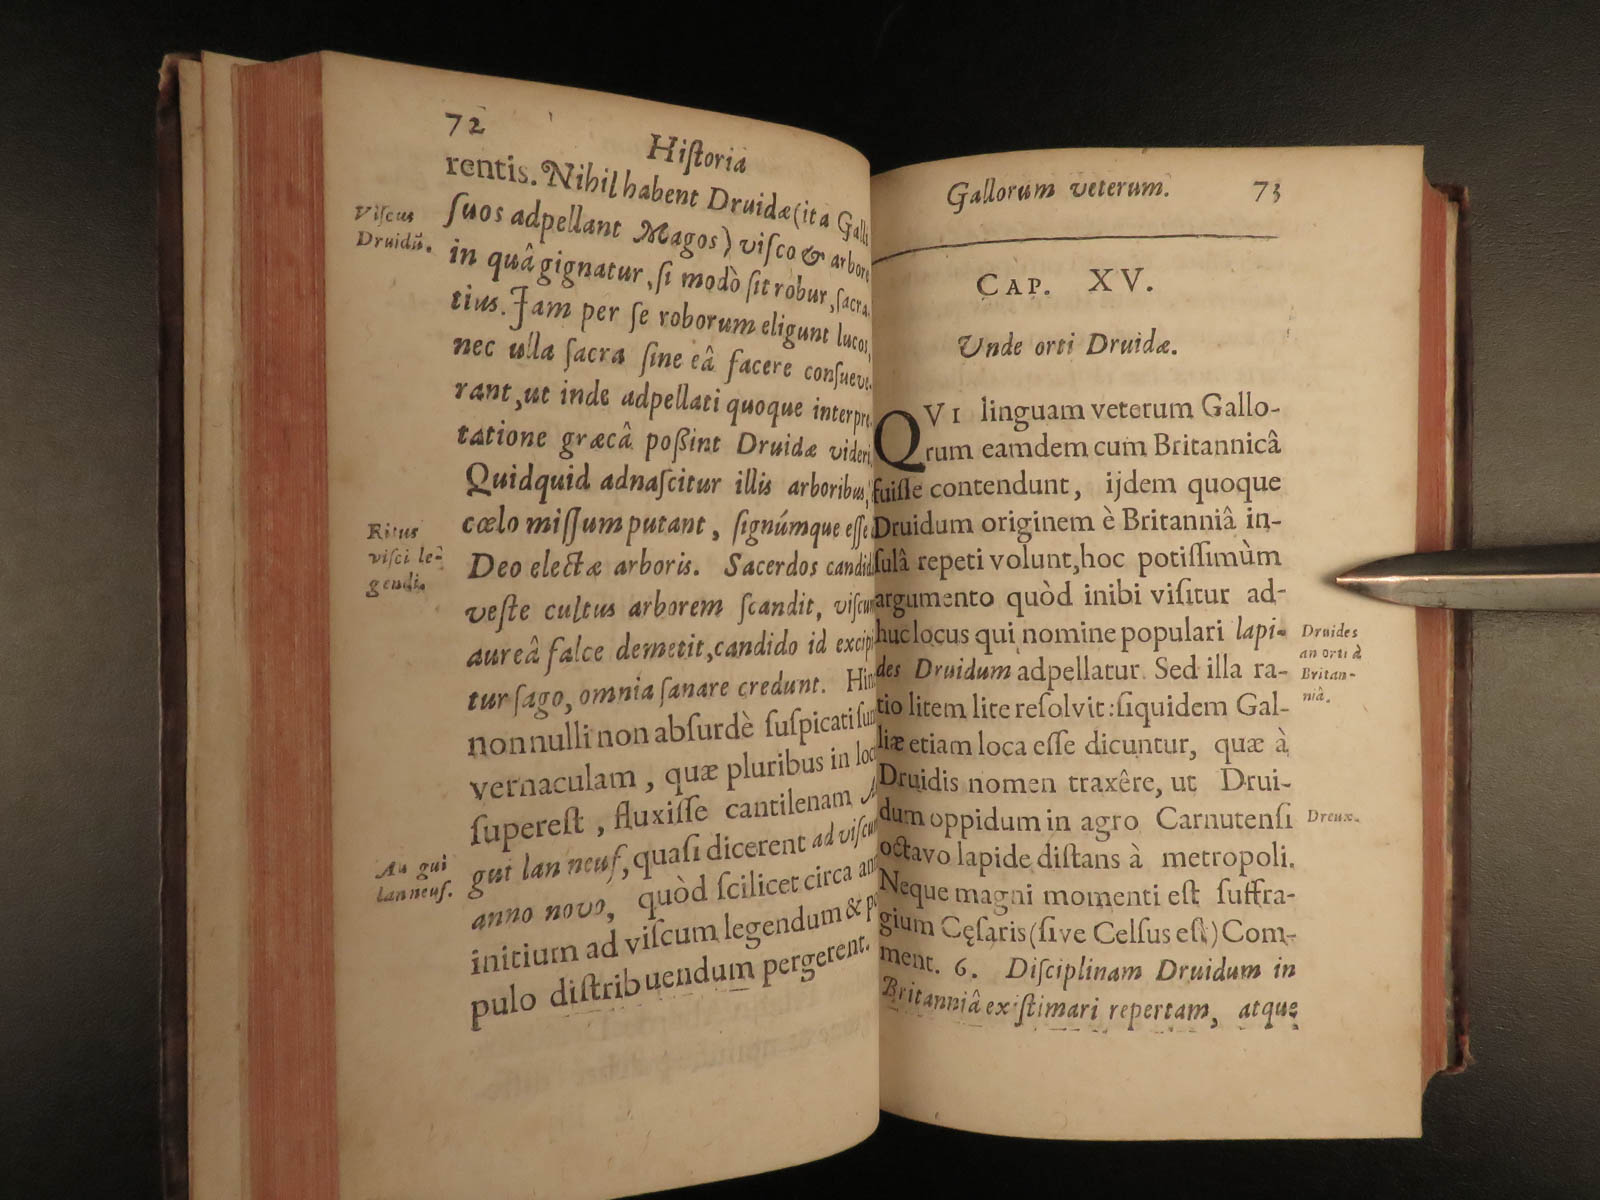 72
Hiſtoria
rentis. Nihil habent Druidæ (ita Galli
ſuos adpellant Magos) viſco & arbore
in quâ gignatur, ſi modò ſit robur, ſacra-
tius. Jam per ſe roborum eligunt lucos,
nec ulla ſacra ſine eâ facere conſueve-
rant, ut inde adpellati quoque interpre-
tatione græcâ poßint Druidæ videri.
Quidquid adnaſcitur illis arboribus,
cœlo miſſum putant, ſignúmque eſſe
Deo electæ arboris. Sacerdos candidâ
veſte cultus arborem ſcandit, viſcum
aureâ falce demetit, candido id excipi
tur ſago, omnia ſanare credunt. Hinc
nonnulli non abſurdè ſuſpicati ſunt
vernaculam, quæ pluribus in loc
ſupereſt, fluxiſſe cantilenam
gui lan neuf, quaſi dicerent ad viſcum
anno novo, quòd ſcilicet circa
initium ad viſcum legendum & po
pulo diſtribuendum pergerent.
Viſcus
Druidū.
Ritus
viſci le-
gendi.
Au gui
lanneuf.
Gallorum veterum. 73
CAP. XV.
Unde orti Druidæ.
QVI linguam veterum Gallo-
rum eamdem cum Britannicâ
fuiſſe contendunt, ijdem quoque
Druidum originem è Britanniâ in-
ſulâ repeti volunt, hoc potiſſimùm
argumento quòd inibi viſitur ad-
huc locus qui nomine populari lapi-
des Druidum adpellatur. Sed illa ra-
tio litem lite reſolvit: ſiquidem Gal-
liæ etiam loca eſſe dicuntur, quæ à
Druidis nomen traxêre, ut Drui-
dum oppidum in agro Carnutenſi
octavo lapide diſtans à metropoli.
Neque magni momenti eſt ſuffra-
gium Cęſaris (ſive Celſus eſt) Com-
ment. 6. Diſciplinam Druidum in
Britanniâ exiſtimari repertam, atque
Druides
an orti à
Britan-
niâ.
Dreux.